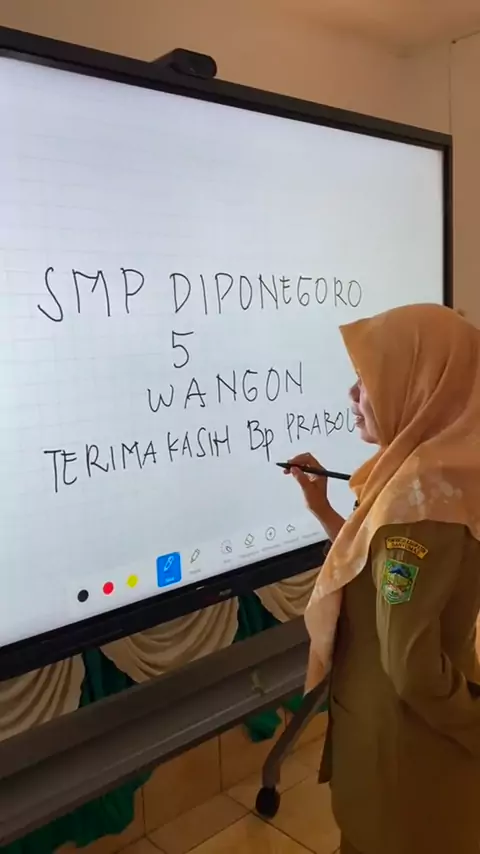 SMP DIPONEGORO
5
WANGON
TERIMA KASIH Bp